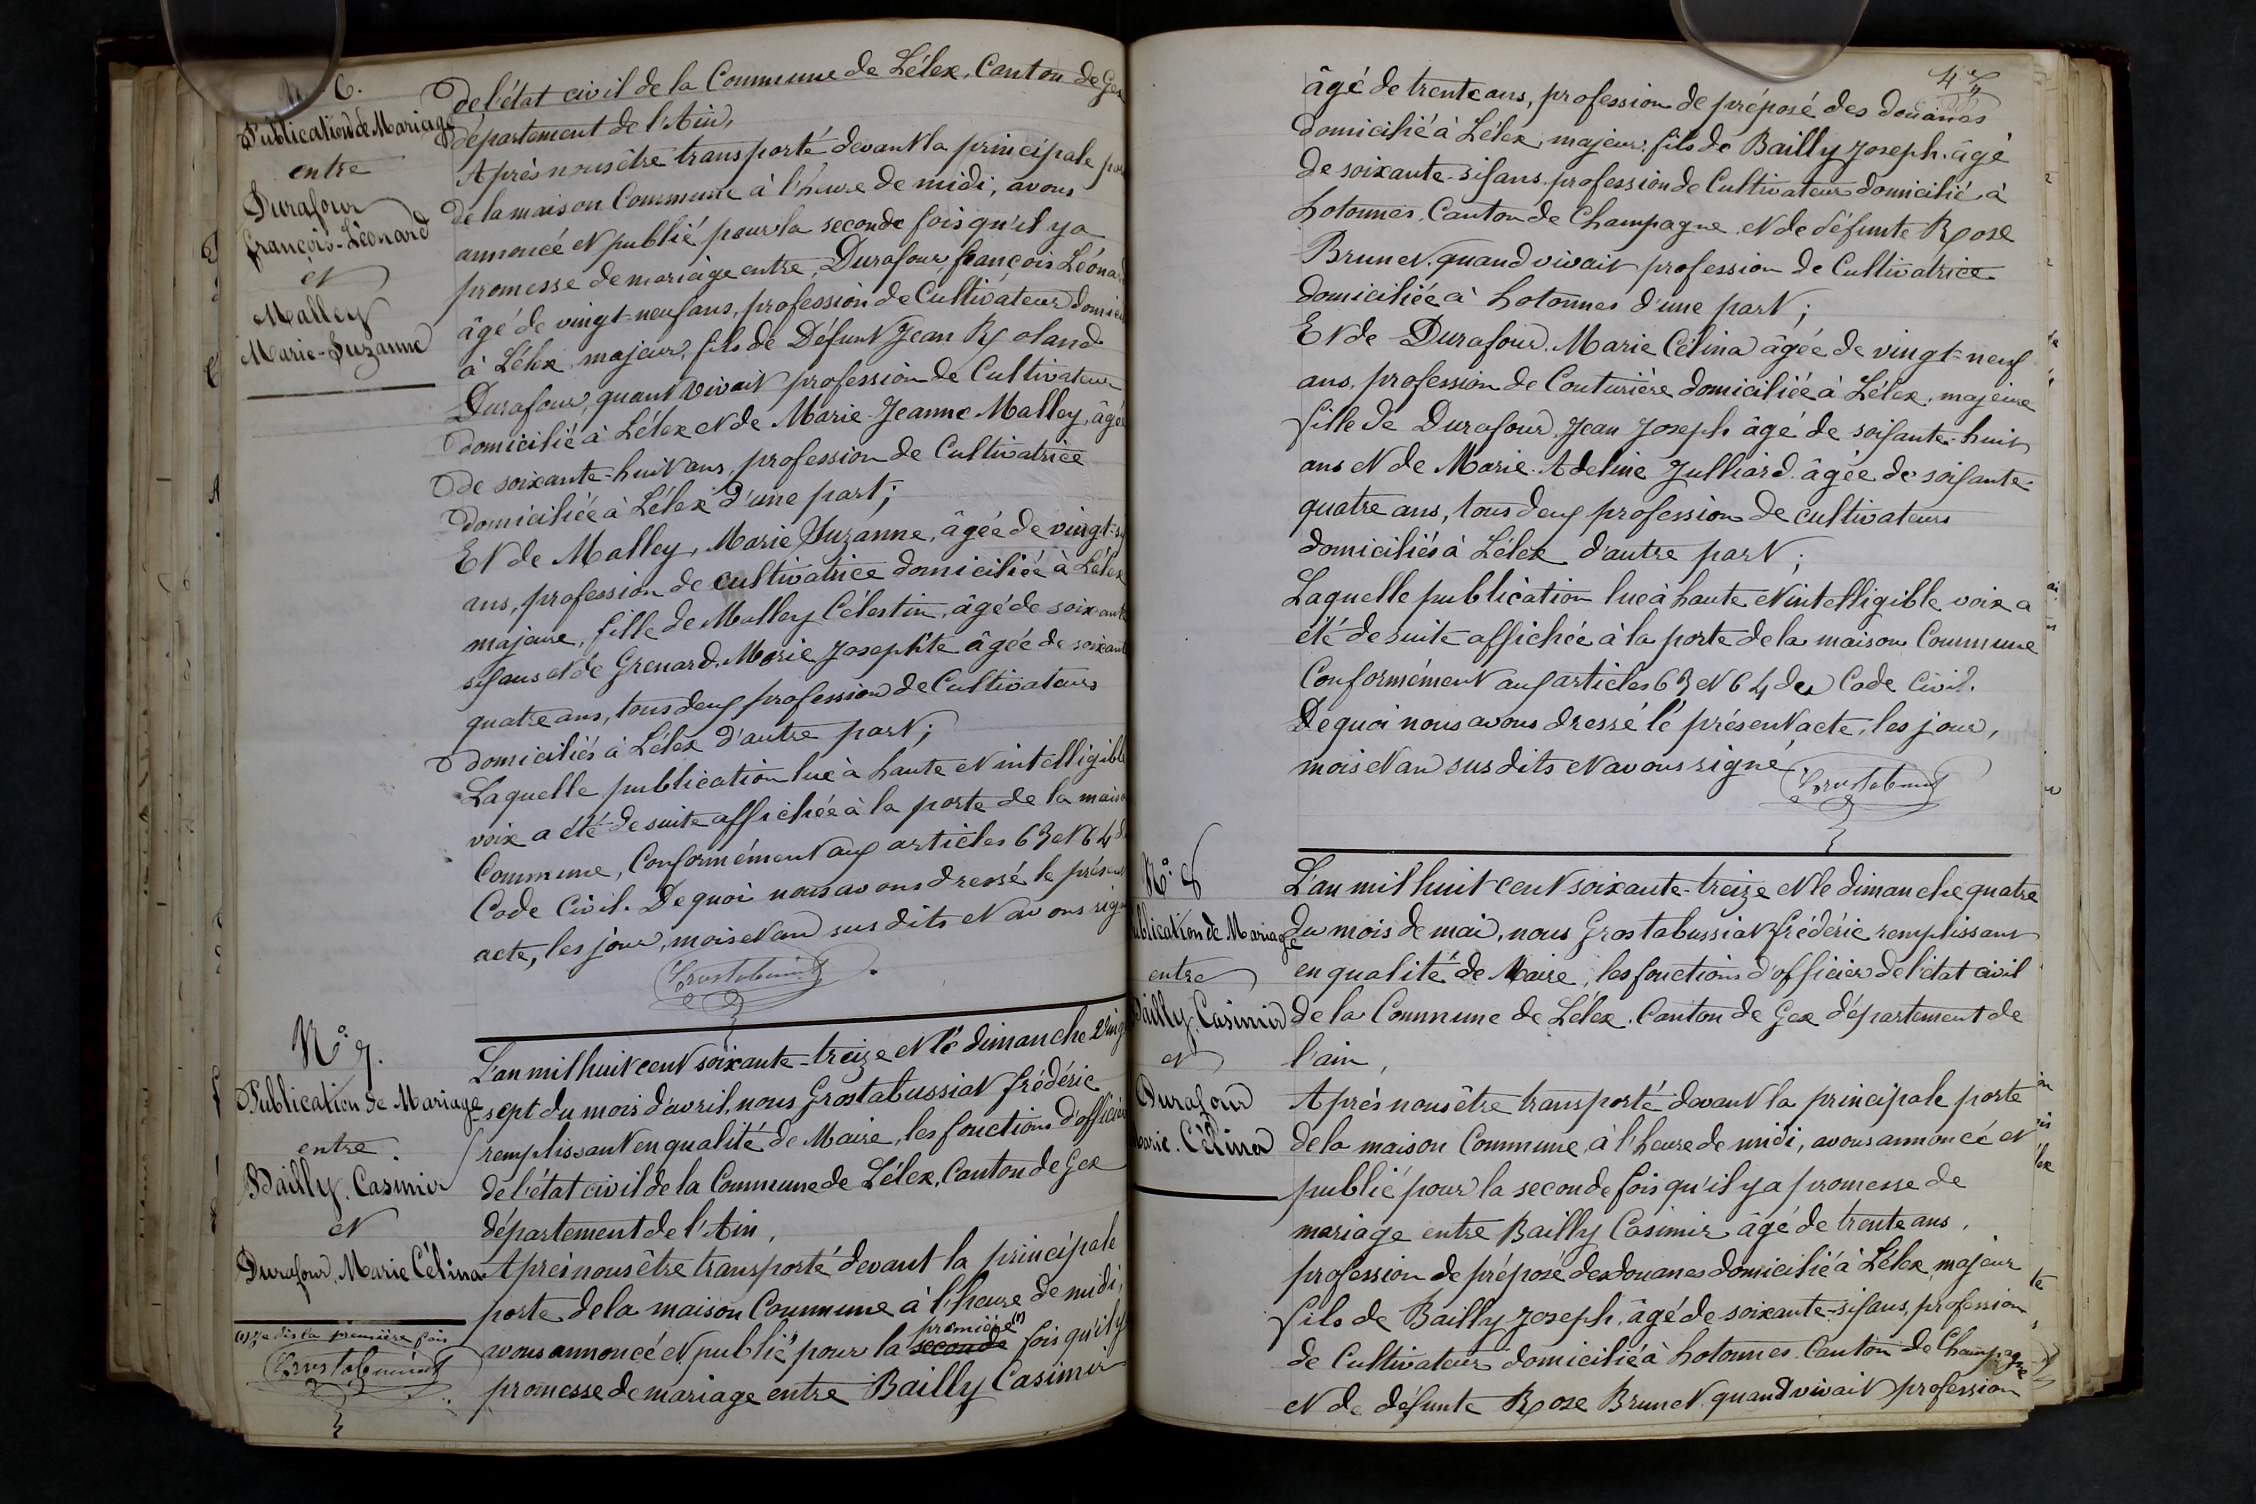 N° 6.
Publication de Mariage
entre
Durafour
françois-Léonard
et
Malley
Marie-Suzanne
de l'état civil de la Commune de Lélex, Canton de Gex
département de l'Ain,
Après nous être transporté devant la principale por
de la maison Commune à l'heure de midi, avons
annoncé et publié pour la seconde fois qu'il y a
promesse de mariage entre, Durafour, françois Léonard
âgé de vingt-neuf ans, profession de Cultivateur domicil
à Lélex, majeur, fils de Défunt Jean Roland
Durafour, quant vivait profession de Cultivateur
domicilié à Lélex et de Marie-Jeanne Malley, âgée
de soixante-huit ans, profession de Cultivatrice
domiciliée à Lélex d'une part;
Et de Malley, Marie Suzanne, âgée de vingt-s
ans, profession de cultivatrice domiciliée à Lélex
majeure, fille de Malley Célestin, âgé de soixante
six ans et de Grenard, Marie Josephte âgée de soixante
quatre ans, tous deux profession de Cultivateurs
domiciliés à Lélex d'autre part;
Laquelle publication lue à haute et intelligible
voix a été de suite affichée à la porte de la maison
Commune, Conformément aux articles 63 et 64 d
Code Civil. De quoi nous avons dressé le présent
acte, les jour, mois et an sus dits et avons sign
N° 7.
Publication de Mariage
entre
Bailly, Casimir
et
Durafour, Marie Célina
(1) Je dis la première fois
L'an mil huit cent soixante-treize et le dimanche vingt
sept du mois d'avril, nous Grostabussiat frédéric
remplissant en qualité de Maire, les fonctions d'officier
de l'état civil de la Commune de Lélex, Canton de Gex
département de l'Ain,
Après nous être transporté devant la principale
porte de la maison Commune à l'heure de midi,
première (1)
avons annoncé et publié pour la seconde fois qu'il y
promesse de mariage entre Bailly Casimir
47
âgé de trente ans, profession de préposé des douanes
domicilié à Lélex, majeur, fils de Bailly Joseph, âgé
de soixante-six ans, profession de Cultivateur domicilié à
hotonnes, Canton de Champagne et de défunte Rose
Brunet, quand vivait profession de Cultivatrice
domiciliée à hotonnes d'une part;
Et de Durafour, Marie Célina âgée de vingt-neuf
ans, profession de Couturière domiciliée à Lélex, majeure
fille de Durafour, Jean Joseph âgé de soixante-huit
ans et de Marie Adeline Julliard âgée de soixante-
quatre ans, tous deux profession de cultivateurs
domiciliés à Lélex d'autre part;
Laquelle publication lue à haute et intelligible voix a
été de suite affichée à la porte de la maison Commune
Conformément aux articles 63 et 64 du Code Civil.
De quoi nous avons dressé le présent acte, les jour,
mois et an sus dits et avons signé
N° 8
ublication de Mariage
entre
Bailly, Casimir
et
Durafour
Marie-Célina
L'an mil huit cent soixante-treize et le dimanche quatre
du mois de mai, nous Grostabussiat frédéric remplissant
en qualité de Maire, les fonctions d'officier de l'état civil
de la Commune de Lélex, Canton de Gex département de
l'ain,
Après nous être transporté devant la principale porte
de la maison Commune, à l'heure de midi, avons annoncé et
publié pour la seconde fois qu'il y a promesse de
mariage entre Bailly Casimir âgé de trente ans,
profession de préposé des douanes domicilié à Lélex, majeur
fils de Bailly Joseph, âgé de soixante-six ans, profession
de Cultivateur domicilié à hotonnes Canton de Champagne
et de défunte Rose Brunet quand vivait profession